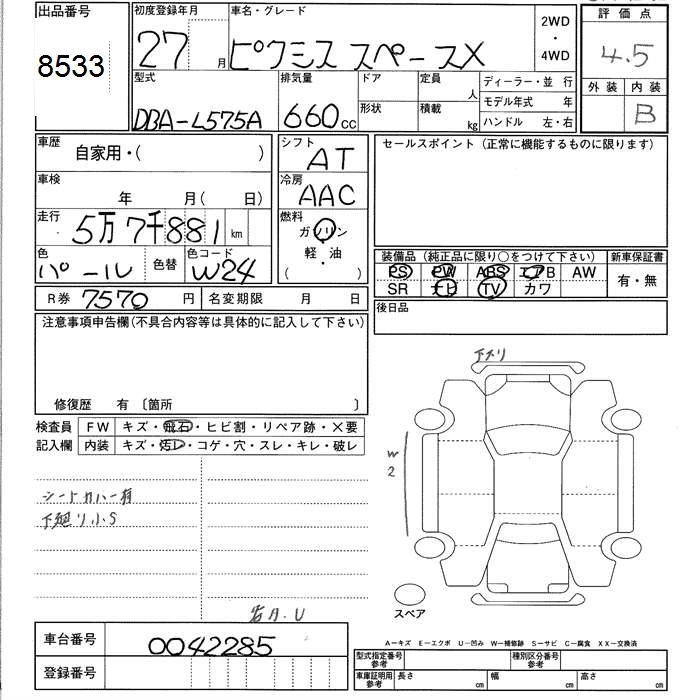 出品番号 初度登録年月 車名・グレード 2WD・4WD 評価点
8533 27月 ピクミス スペースX 4.5
型式 排気量 ドア 定員 人 ディーラー・並 行 外装 内装
DBA-L575A 660cc 形状 積載 kg モデル年式 年 B
ハンドル 左・右
車歴 自家用・( ) シフト AT セールスポイント(正常に機能するものに限ります)
車検 年 月( 日) 冷房 AAC
走行 5万7千881km 燃料 ガソリン
色 パール 色替 色コード W24 軽・油
( )
装備品(純正品に限り○をつけて下さい) 新車保証書
PS PW ABS エアB AW 有・無
SR ナビ TV カワ
R券 7570円 名変期限 月 日 後日品
注意事項申告欄(不具合内容等は具体的に記入して下さい)
修復歴 有 〔箇所 〕
下スリ
検査員 FW キズ・飛石・ヒビ割・リペア跡・×要
記入欄 内装 キズ・汚レ・コゲ・穴・スレ・キレ・破レ
W2
シートカバー有
下廻り小S
スペア
A-キズ E-エクボ U-凹み W-補修跡 S-サビ C-腐食 XX-交換済
車台番号 0042285
型式指定番号参考 種別区分番号参考
登録番号
車庫証明用参考 長さ cm 幅 cm 高さ cm